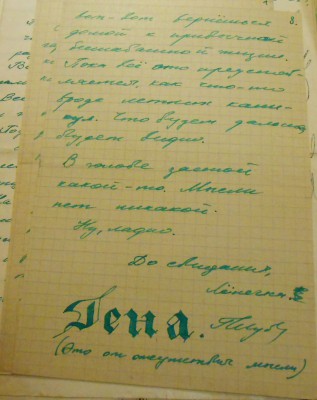 8.
вот-вот вернёшься
домой к привычной
бесшабашной жизни.
Пока всё это представ-
ляется, как что-то
вроде летних кани-
кул. Что будет дальше,
будет видно.
В голове застой
какой-то. Мысли
нет никакой.
Ну, ладно.
До свидания,
Лёлечка.
Гена. Целую
(Это от отсутствия мысли)